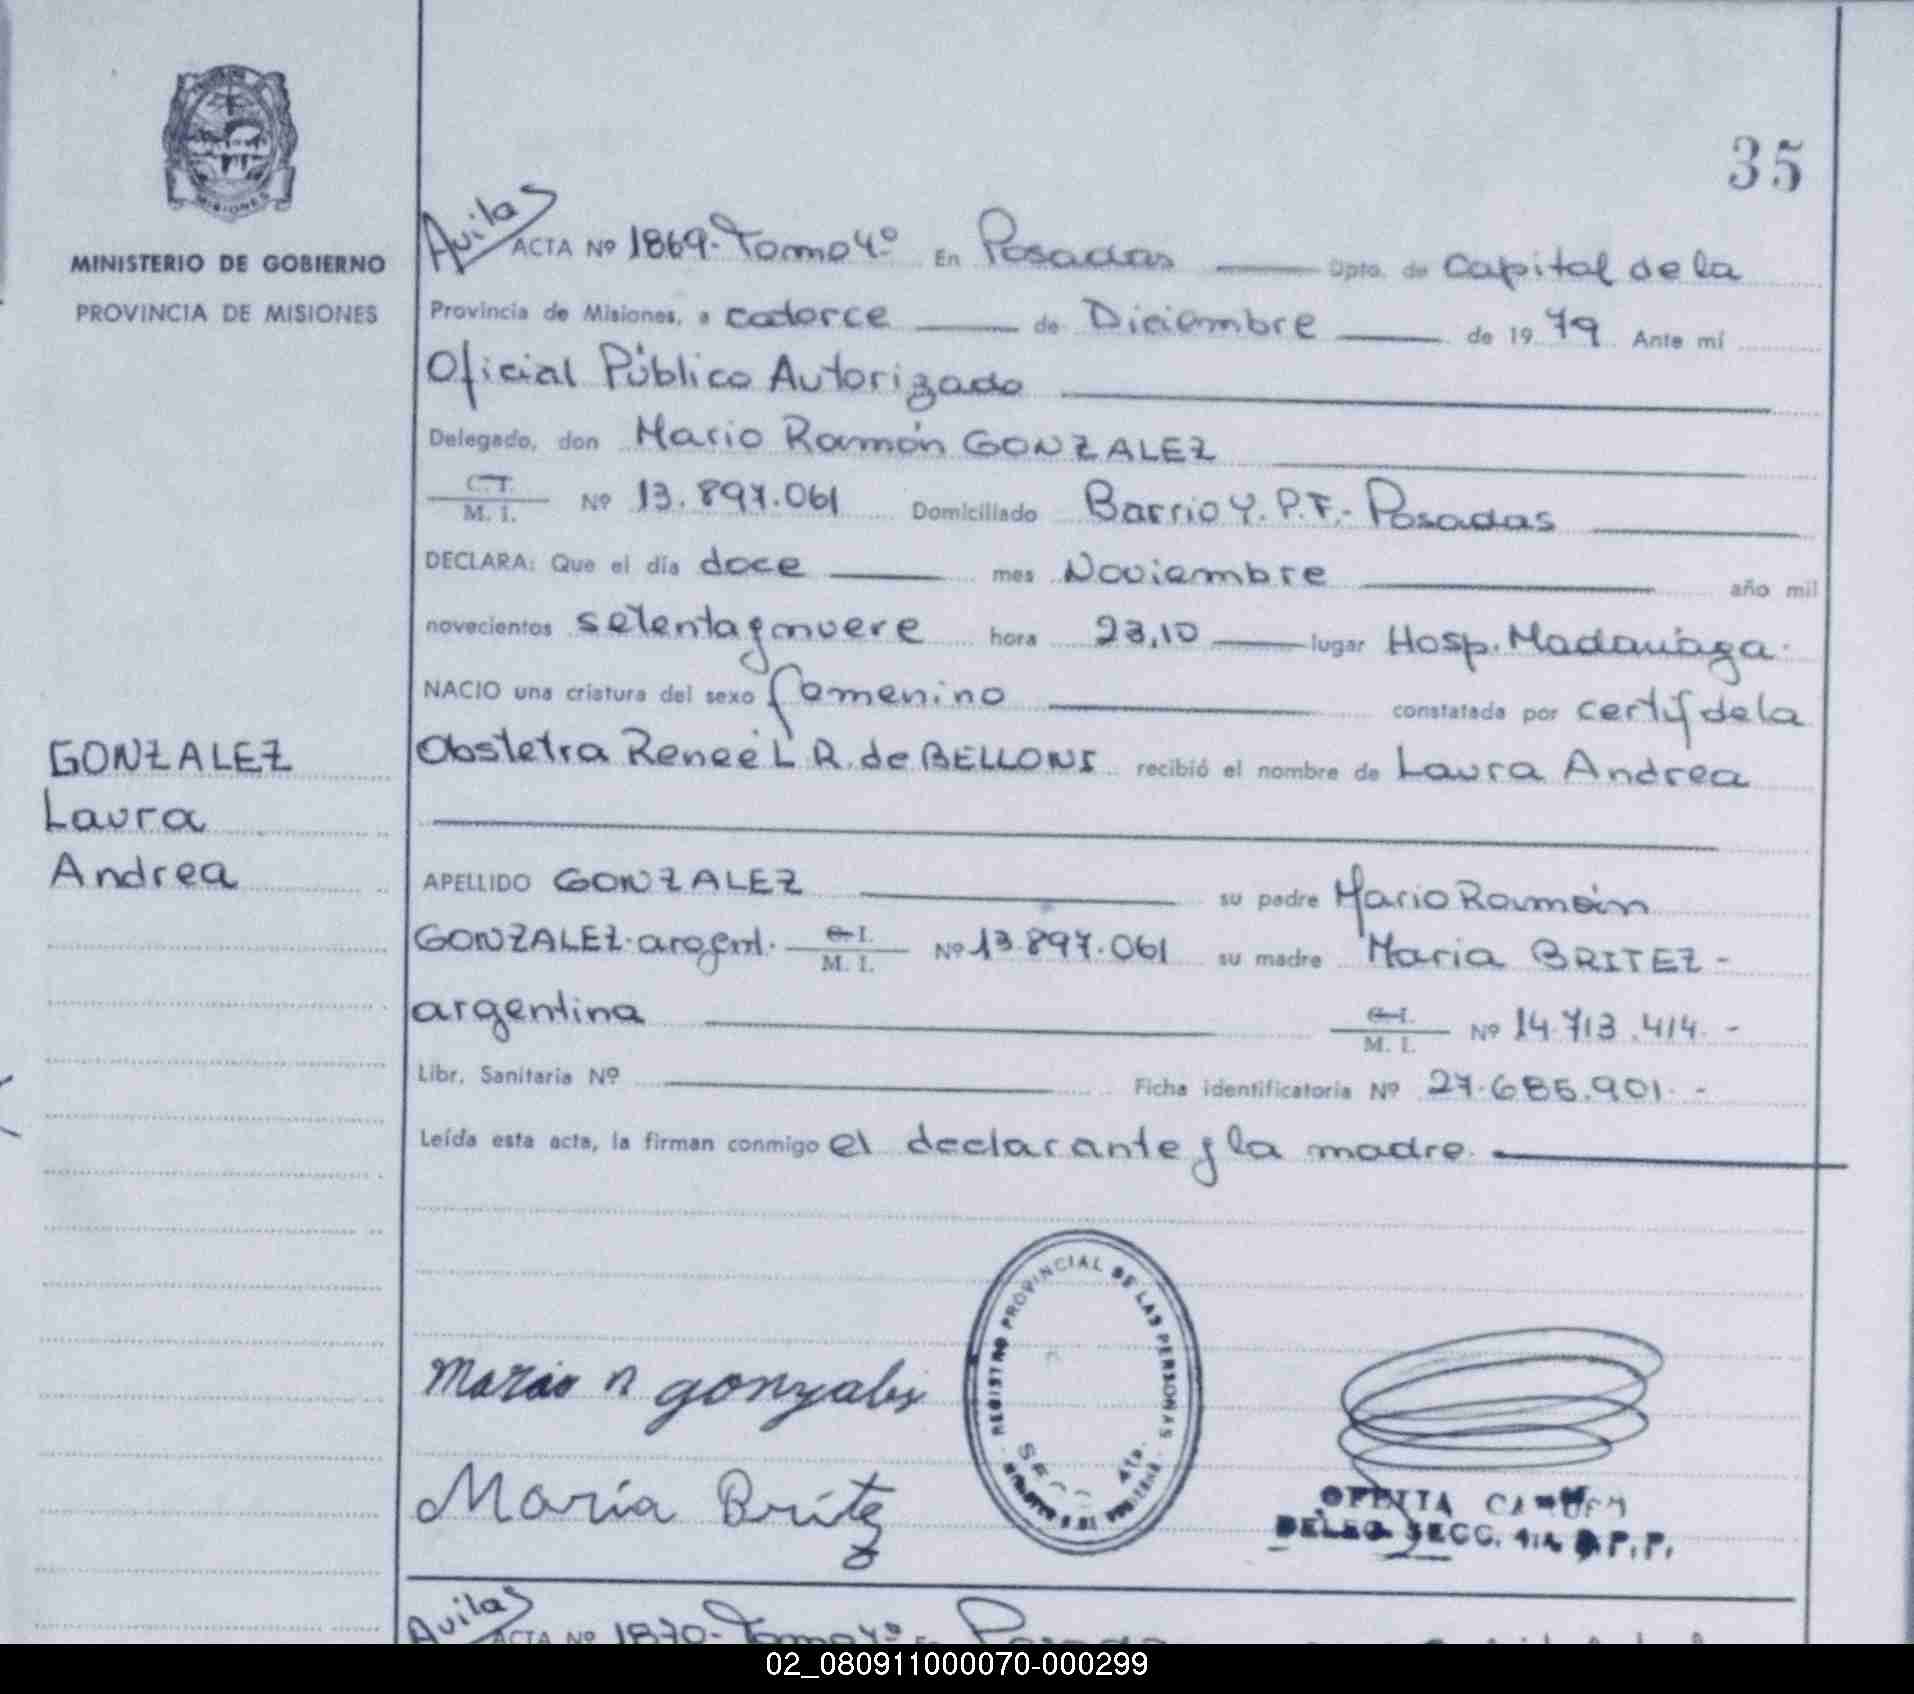 MISIONES
MINISTERIO DE GOBIERNO
PROVINCIA DE MISIONES
35
Avilas
ACTA Nº 1869-Tomo 4º En Posadas Dpto. de Capital de la
Provincia de Misiones, a catorce de Diciembre de 1979 Ante mí
Oficial Público Autorizado
Delegado, don Mario Ramón GONZALEZ
C. I.
M. I. Nº 13.897.061 Domiciliado Barrio Y.P.F.- Posadas
DECLARA: Que el día doce mes Noviembre año mil
novecientos setenta y nueve hora 23,10 lugar Hosp. Madariaga.
NACIO una criatura del sexo femenino constatada por certif de la
Obstetra Reneé L R. de BELLONI recibió el nombre de Laura Andrea
GONZALEZ
Laura
Andrea
APELLIDO GONZALEZ su padre Mario Ramón
GONZALEZ-argent. C. I.
M. I. Nº 13.897.061 su madre Maria BRITEZ -
argentina C. I.
M. I. Nº 14.713.414.-
Libr. Sanitaria Nº Ficha identificatoria Nº 27.685.901.-
Leída esta acta, la firman conmigo el declarante y la madre.
REGISTRO PROVINCIAL DE LAS PERSONAS
4ta.
Mario R gonzalez
María Britez
DELEG. SECC. 4ta R.P.P.
Avilas
ACTA Nº 1870-Tomo 4º En Posadas
02_080911000070-000299